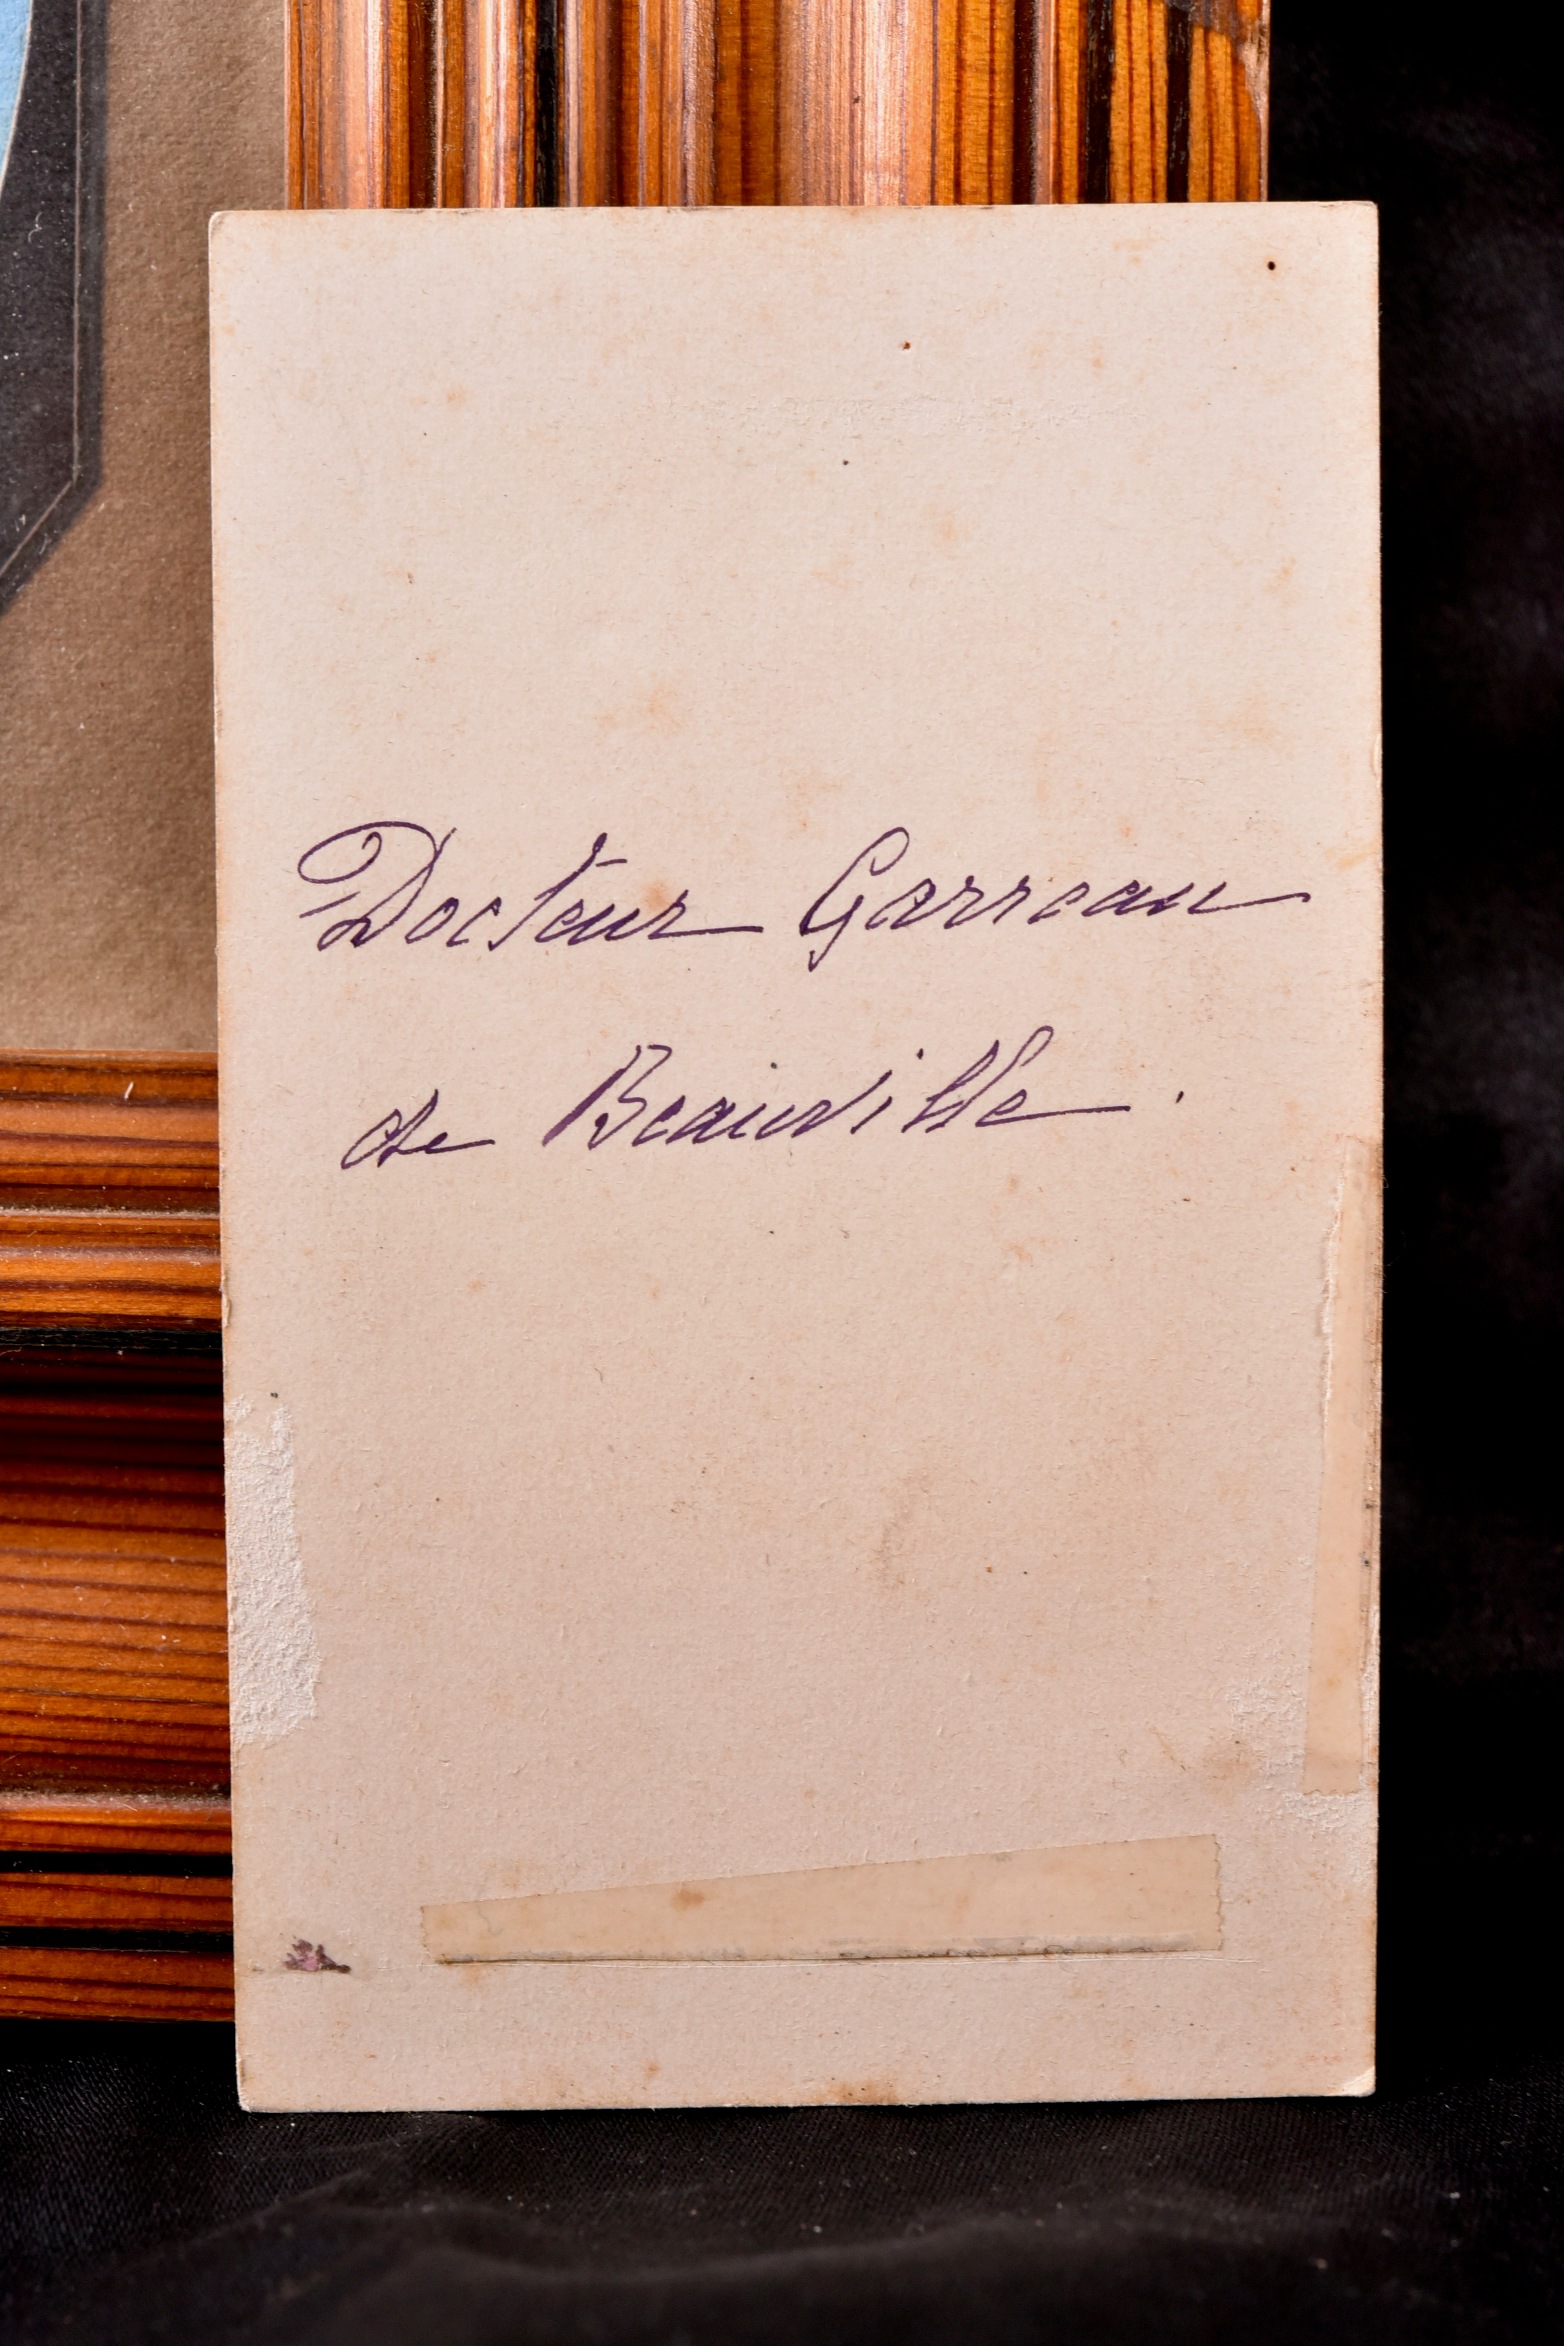 Docteur Garreau
de Beauville.